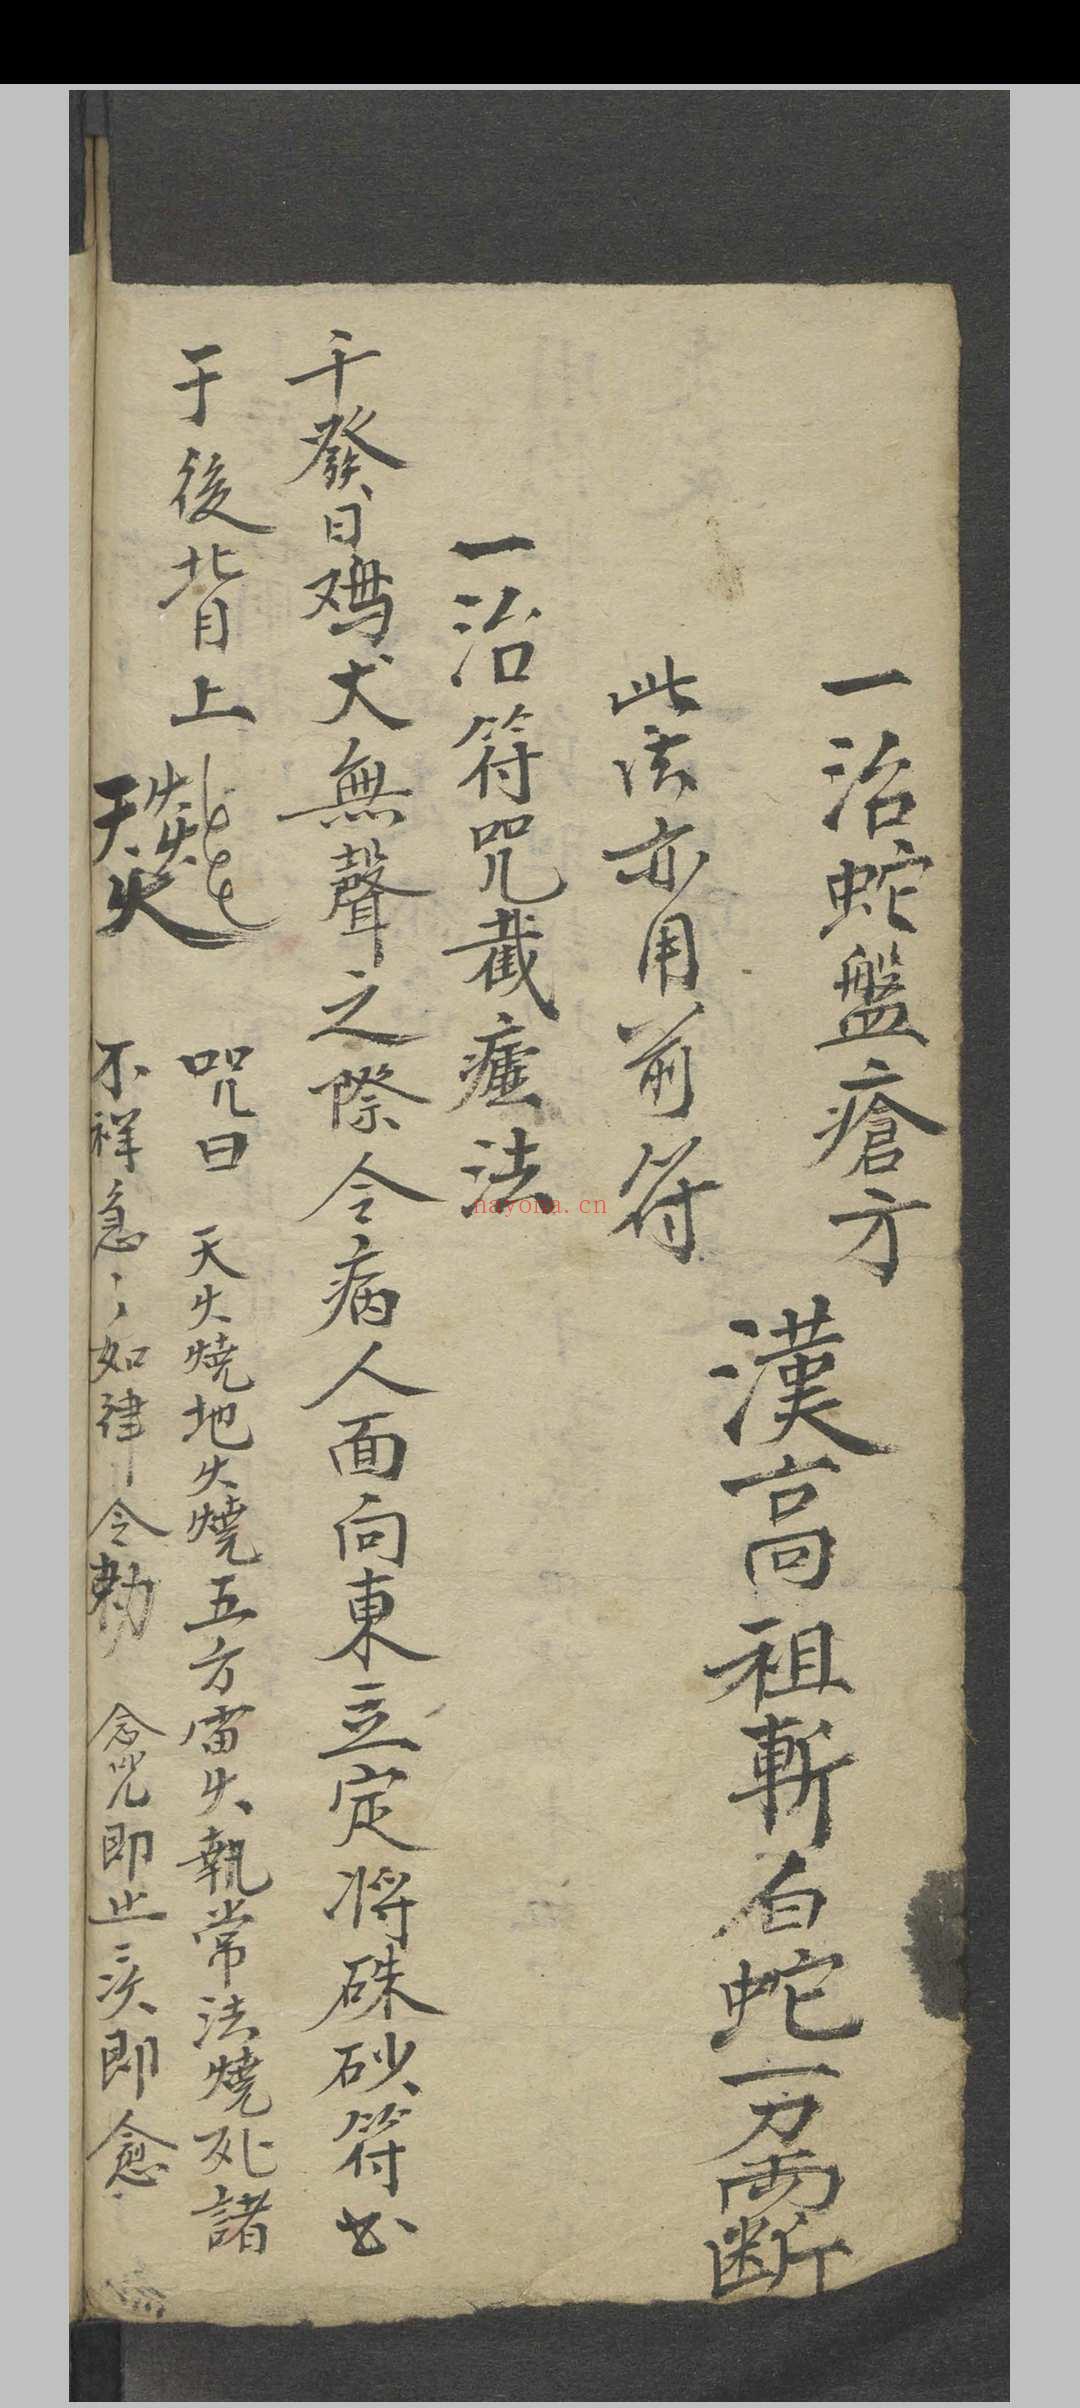 一治蛇盤瘡方
漢高祖斬白蛇一刀兩断
此法亦用前符
一治符咒截瘧法
于發日鸡犬無聲之際令病人面向東立定将硃砂符书
于後背上
咒曰 天火燒地火燒五方雷火執常法燒死諸
不祥急〻如律令勅 念咒即止 即愈
nayona.cn